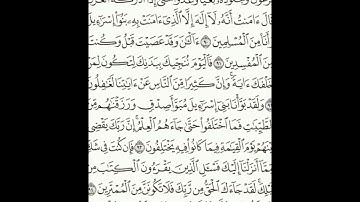 فِرْعَوْنُ وَجُنُودُهُۥ بَغْيًا وَعَدْوًا حَتَّىٰٓ إِذَآ أَدْرَكَهُ ٱلْغَرَقُ
قَالَ ءَامَنتُ أَنَّهُۥ لَآ إِلَٰهَ إِلَّا ٱلَّذِىٓ ءَامَنَتْ بِهِۦ بَنُوٓا۟ إِسْرَٰٓءِيلَ
وَأَنَا۠ مِنَ ٱلْمُسْلِمِينَ ٩٠ ءَآلْـَٰٔنَ وَقَدْ عَصَيْتَ قَبْلُ وَكُنتَ
مِنَ ٱلْمُفْسِدِينَ ٩١ فَٱلْيَوْمَ نُنَجِّيكَ بِبَدَنِكَ لِتَكُونَ لِمَنْ
خَلْفَكَ ءَايَةً وَإِنَّ كَثِيرًا مِّنَ ٱلنَّاسِ عَنْ ءَايَٰتِنَا لَغَٰفِلُونَ
٩٢ وَلَقَدْ بَوَّأْنَا بَنِىٓ إِسْرَٰٓءِيلَ مُبَوَّأَ صِدْقٍ وَرَزَقْنَٰهُم مِّنَ
ٱلطَّيِّبَٰتِ فَمَا ٱخْتَلَفُوا۟ حَتَّىٰ جَآءَهُمُ ٱلْعِلْمُ إِنَّ رَبَّكَ يَقْضِى
بَيْنَهُمْ يَوْمَ ٱلْقِيَٰمَةِ فِيمَا كَانُوا۟ فِيهِ يَخْتَلِفُونَ ٩٣ فَإِن كُنتَ فِى شَكٍّ
مِّمَّآ أَنزَلْنَآ إِلَيْكَ فَسْـَٔلِ ٱلَّذِينَ يَقْرَءُونَ ٱلْكِتَٰبَ مِن
قَبْلِكَ لَقَدْ جَآءَكَ ٱلْحَقُّ مِن رَّبِّكَ فَلَا تَكُونَنَّ مِنَ ٱلْمُمْتَرِينَ ٩٤